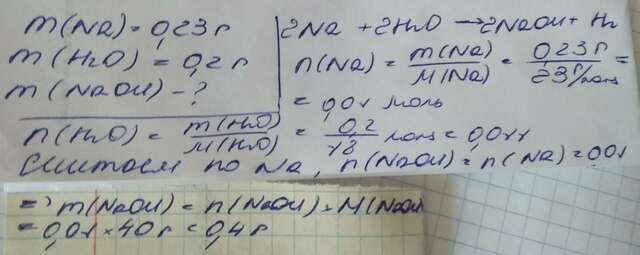 m(Na) = 0,23 г
m(H2O) = 0,2 г
m(NaOH) - ?
2Na + 2H2O → 2NaOH + H2
n(Na) = m(Na)/M(Na) = 0,23 г/23 г/моль =
= 0,01 моль
n(H2O) = m(H2O)/M(H2O) = 0,2/18 моль = 0,011
Считаем по Na, n(NaOH) = n(Na) = 0,01
=> m(NaOH) = n(NaOH) × M(NaOH)
= 0,01 × 40 г = 0,4 г